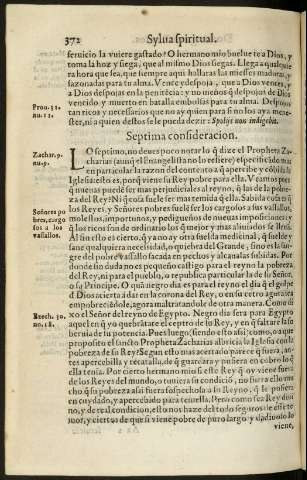 372 Sylua spiritual.
seruicio la vuiere gastado? O hermano mio buelue te a Dios, y
toma la hoz y siega, que al mismo Dios siegas. Llega a qualquie
ra hora que sea, que siempre aqui hallaras las miesses maduras, y
sazonadas para tu alma. Vence y despoja, que a Dios vences, y
a Dios despojas en la penitecia: y no menos q̃ despojos de Dios
vencido y muerto en batalla embolsas para tu alma. Despojos
tan ricos y necessarios que no ay quien para si no los aya mene-
ster, ni a quien destos se le pueda dezir: Spolijs non indigebit.
Prou. 31.
nu. 11.
Septima consideracion.
Zachar. 9.
nu. 9.
LO septimo, no deues poco notar lo q̃ dize el Propheta Za-
charias (aunq̃ el Euangelista no lo refiere) especificãdo mas
en particular la razon del contento a q̃ apercibe y cõbida su
Iglesia: esto es, porq̃ viene su Rey pobre para ella. Veamos pues
q̃ nueuas puede ser mas perjudiciales al reyno, q̃ las de la pobre-
za del Rey? Ni q̃ cosa suele ser mas temida q̃ ella. Sabida cosa es q̃
los Reyes, y Señores pobres suele ser los cargosos a sus vassallos,
molestos, importunos, y pedigueños de nueuas imposiciones; y
Señores po
bres, cargo
sos a los
vassallos.
q̃ los ricos son de ordinario los q̃ mejor y mas aliuiados se lleuã.
Al fin esto es cierto, q̃ ya no ay otra suelda medicinal, q̃ suelde y
sane qualquiera necessidad, o quiebra del Grande, sino es la san-
gre del pobre vassallo sacada en pechos y alcaualas subidas. Por
donde sin duda no es pequeño castigo para el reyno la pobreza
del Rey, ni para el pueblo, o republica particular la de su Señor,
o su Principe. O que negro dia es para el reyno el dia q̃ el golpe
de Dios acierta a dar en la corona del Rey, o en su cetro agora sea
empobreciẽdole, agora maltratãdole de otra manera. Como di-
xo el Señor del reyno de Egypto. Negro dia sera para Egypto
Ezech. 30.
no. 18.
aquel en q̃ yo quebrãtare el ceptro de su Rey, y en q̃ faltare la so-
beruia de su potencia. Pues luego, siendo esto assi: como, o a que
proposito el sancto Propheta Zacharias albricia la Iglesia con la
pobreza de su Rey? Segun esto mas acertado parece q̃ fuera, an-
tes apercebilla y encaualla, de q̃ guardara y pusiera en cobro lo q̃
ella tenia. Por cierto hermano mio si este Rey q̃ oy viene fuera
de los Reyes del mundo, o tuuiera su condicion, no fuera ello mu
cho q̃ su pobreza assi fuera sospechosa a su Reyno, q̃ le pusiera
en cuydado, y apercebido para temerla. Pero como sea Rey diui
no, y de real condicion, esto nos haze del todo seguros de este te-
mor, y ciertos de que si viene pobre de puro largo y dadiuoso lo
viene,